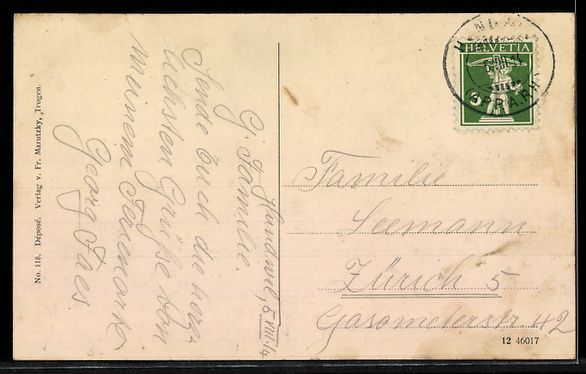 No. 118. Déposé. Verlag v. Fr. Marutzky, Trogen.
Hundwil, 5. VIII. 14
G. Familie.
Sende Euch die herz-
lichsten Grüße von
meinem
Georg Faes.
HELVETIA
5
Familie
Seemann
Zürich 5
Gasometerstr. 42
12 46017